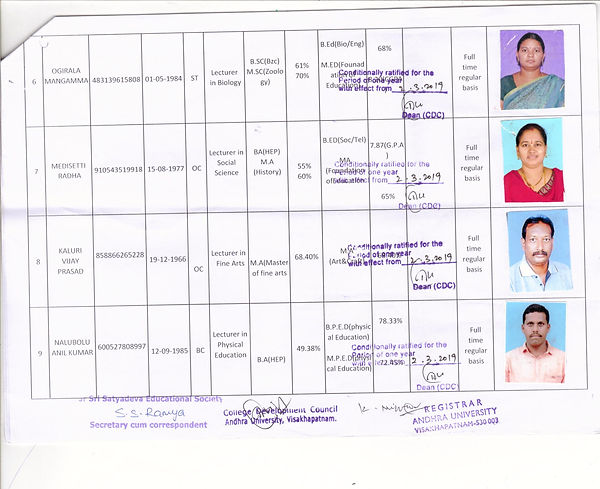 6
OGIRALA
MANGAMMA
483139615808
01-05-1984
ST
Lecturer
in Biology
B.SC(Bzc)
M.SC(Zoolo
gy)
61%
70%
B.Ed(Bio/Eng)
M.ED(Found
ation of
Education)
68%
Conditionally ratified for the
Period of one year
with effect from 2.3.2019
Dean (CDC)
Full
time
regular
basis
7
MEDISETTI
RADHA
910543519918
15-08-1977
OC
Lecturer in
Social
Science
BA(HEP)
M.A
(History)
55%
60%
B.ED(Soc/Tel)
MA
(Foundation
of education
7.87(G.P.A
)
65%
Conditionally ratified for the
Period of one year
with effect from 2.3.2019
Dean (CDC)
Full
time
regular
basis
8
KALURI
VIJAY
PRASAD
858866265228
19-12-1966
OC
Lecturer in
Fine Arts
M.A(Master
of fine arts
68.40%
Conditionally ratified for the
Period of one year
with effect from 2.3.2019
Dean (CDC)
Full
time
regular
basis
9
NALUBOLU
ANIL KUMAR
600527808997
12-09-1985
BC
Lecturer in
Physical
Education
B.A(HEP)
49.38%
B.P.E.D(physic
al Education)
M.P.E.D(physi
cal Education)
78.33%
72.45%
Conditionally ratified for the
Period of one year
2.3.2019
Dean (CDC)
Full
time
regular
basis
Sri Satyadeva Educational Society
S.S. Ramya
Secretary cum correspondent
College Development Council
Andhra University, Visakhapatnam.
REGISTRAR
ANDHRA UNIVERSITY
VISAKHAPATNAM-530 003